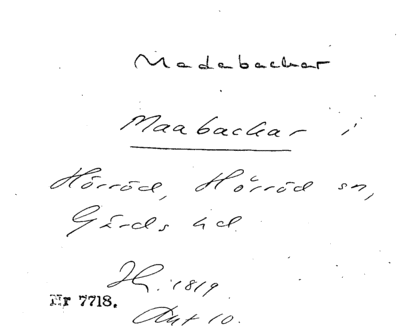 Madabackar
Maabackar i
Hörröd, Hörröd sn,
Gärds hd
H. 1819
Nr 7718.
Akt 10.